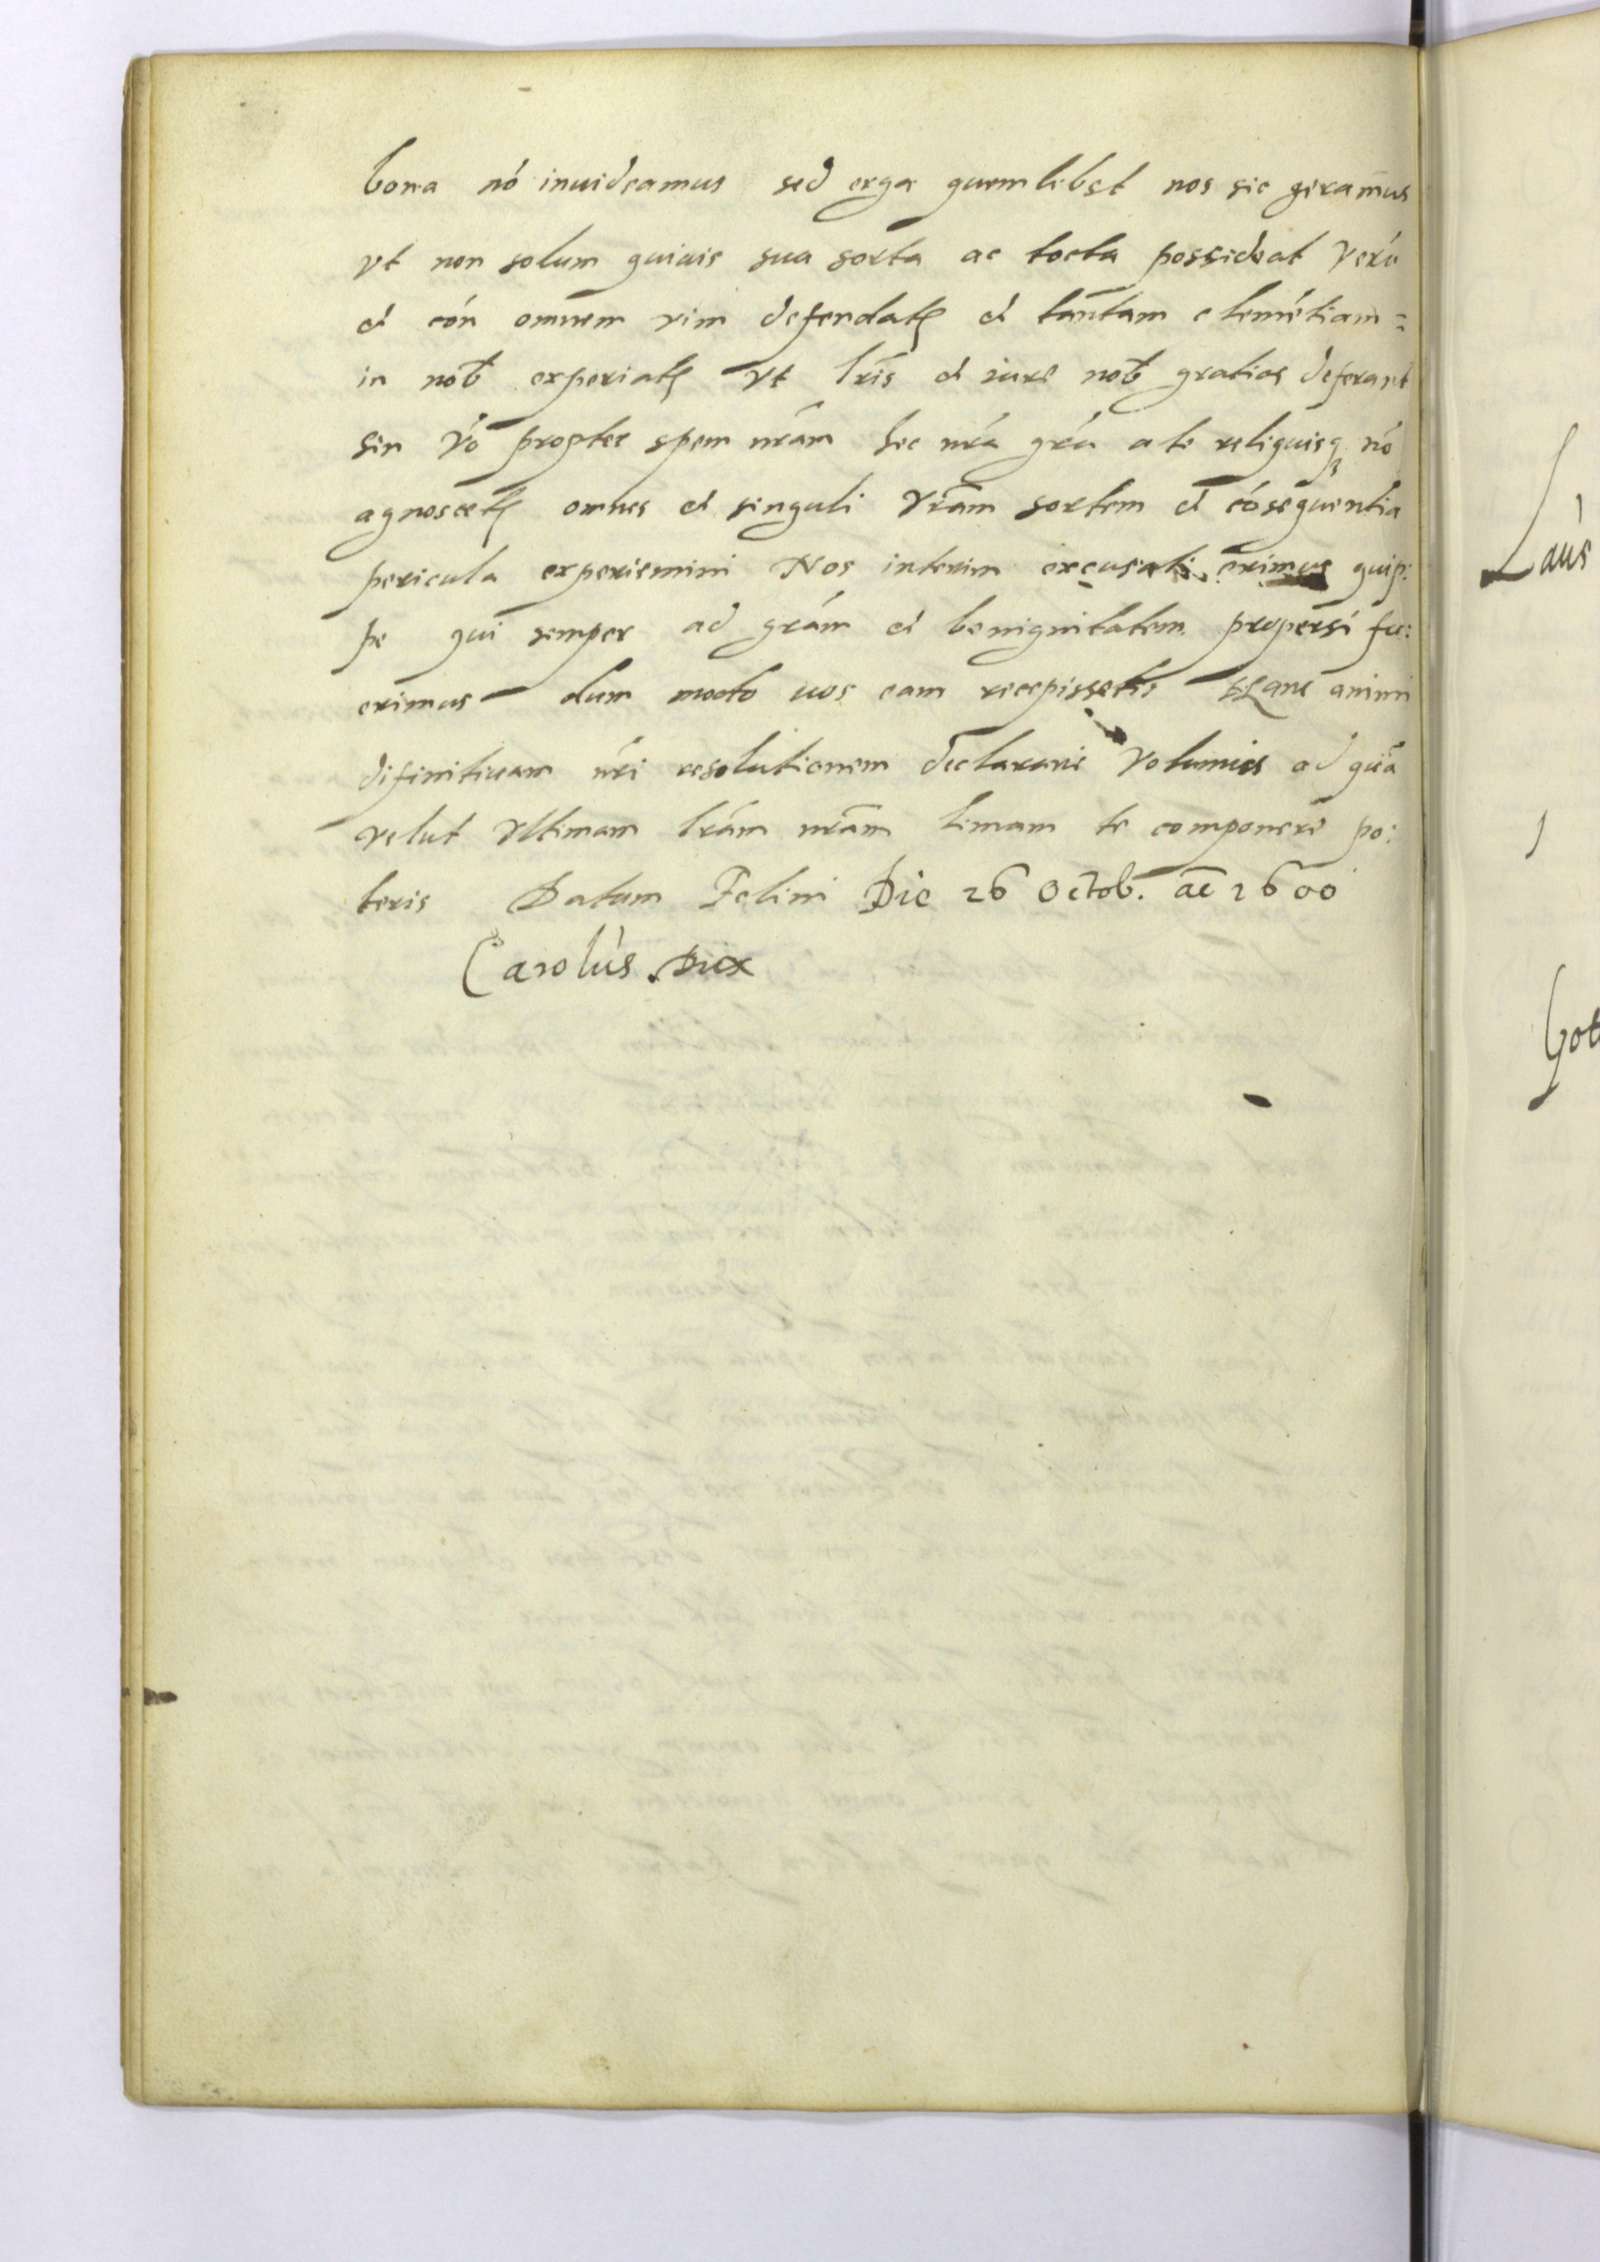 bona nó inuideamus sed erga quemlibet nos sic geramus
vt non solum quiuis sua sorta ac tecta possideat verú
et cón omnem vim defendat et tantam clemétiam=
in nob experiat vt lris et iure nob gratias deferant
sin vó propter spem nrám hec nrá grá a te reliquisq nó
agnoscet omnes et singuli vrám sortem et cósequentia
pericula experiemini Nos interim excusati erimus quip:
pe qui semper ad grám et benignitatem propensi fu:
erimus dum modo uos eam recepissetis Hanc animi
difinitiuam nri resolutionem declarare volumus ad quá
velut vltimam lrám nrám limam te componere po:
teris Datum Felini Die 26 Octob. ae 1600
Carolus Dux
Laus
Got